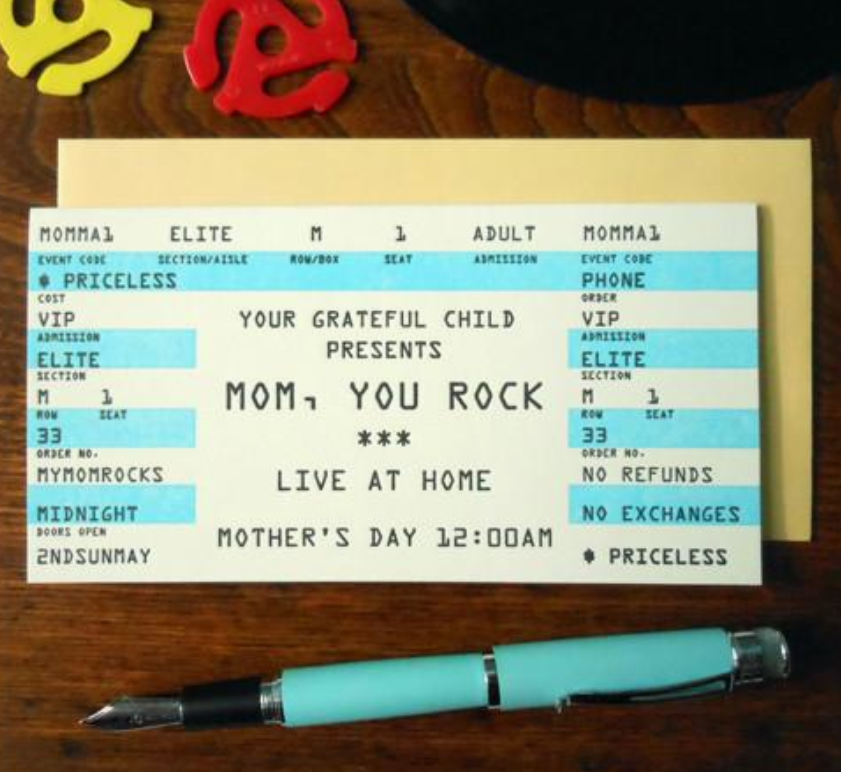 MOMMA1 ELITE M 1 ADULT MOMMA1
EVENT CODE SECTION/AISLE ROW/BOX SEAT ADMISSION EVENT CODE
PRICELESS
COST
VIP
ADMISSION
ELITE
SECTION
M 1
ROW SEAT
33
ORDER NO.
MYMOMROCKS
MIDNIGHT
DOORS OPEN
2NDSUNMAY
YOUR GRATEFUL CHILD
PRESENTS
MOM, YOU ROCK
***
LIVE AT HOME
MOTHER'S DAY 12:00AM
PHONE
ORDER
VIP
ADMISSION
ELITE
SECTION
M 1
ROW SEAT
33
ORDER NO.
NO REFUNDS
NO EXCHANGES
PRICELESS